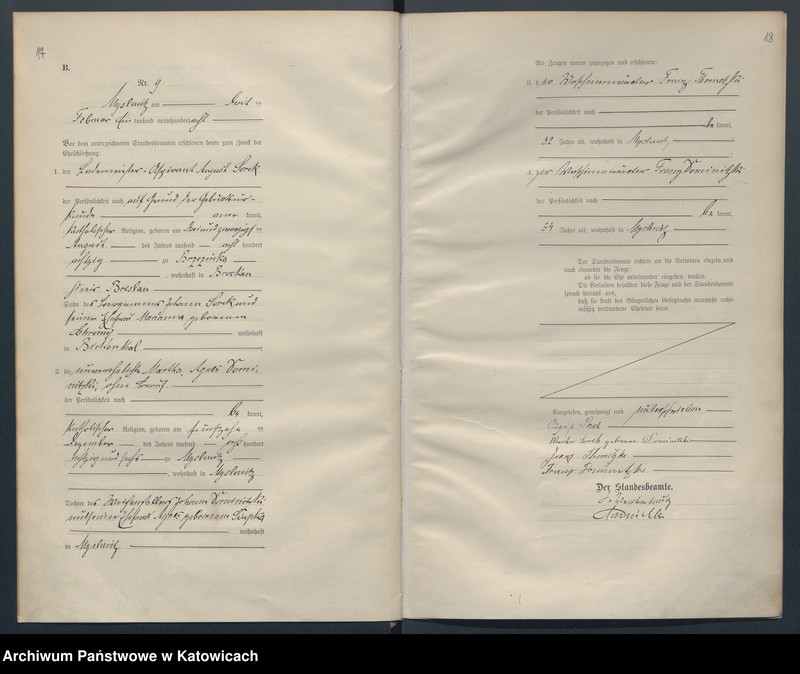 17
B.
Nr. 9
Myslowitz am
Februar ein tausend neunhundert acht
Vor dem unterzeichneten Standesbeamten erschienen heute zum Zweck der
Eheschließung:
1. der Lademeister-Aspirant August Sorek
der Persönlichkeit nach auf Grund der Geburtsur-
kunde aner kannt,
katholischer Religion, geboren am dreiundzwanzigsten
August des Jahres tausend acht hundert
achtzig zu Brzezinka
, wohnhaft in Breslau
Kreis Breslau
Sohn des Bergmanns Johann Sorek und
seiner Ehefrau Marianna geborenen
wohnhaft
in Birkental
2. die unverehelichte Martha Agnes Domi-
nitzki, ohne Beruf
der Persönlichkeit nach
be kannt,
katholischer Religion, geboren am fünfzehn
Dezember des Jahres tausend acht hundert
achtzig und sechs zu Myslowitz
, wohnhaft in Myslowitz
Tochter des Weichenstellers Johann Dominitzki
und seiner Ehefrau Agnes geborenen
wohnhaft
in Myslowitz
18
Als Zeugen waren zugezogen und erschienen:
3. der Franz
der Persönlichkeit nach
be kannt,
32 Jahre alt, wohnhaft in Myslowitz
4. der Franz Dominitzki
der Persönlichkeit nach
be kannt,
34 Jahre alt, wohnhaft in Myslowitz
Der Standesbeamte richtete an die Verlobten einzeln und
nach einander die Frage:
ob sie die Ehe miteinander eingehen wollen.
Die Verlobten bejahten diese Frage und der Standesbeamte
sprach hierauf aus,
daß sie kraft des Bürgerlichen Gesetzbuchs nunmehr recht-
mäßig verbundene Eheleute seien.
Vorgelesen, genehmigt und unterschrieben
August Sorek
Martha Sorek geborene Dominitzki
Franz
Franz Dominitzki
Der Standesbeamte.
In Vertretung
Archiwum Państwowe w Katowicach